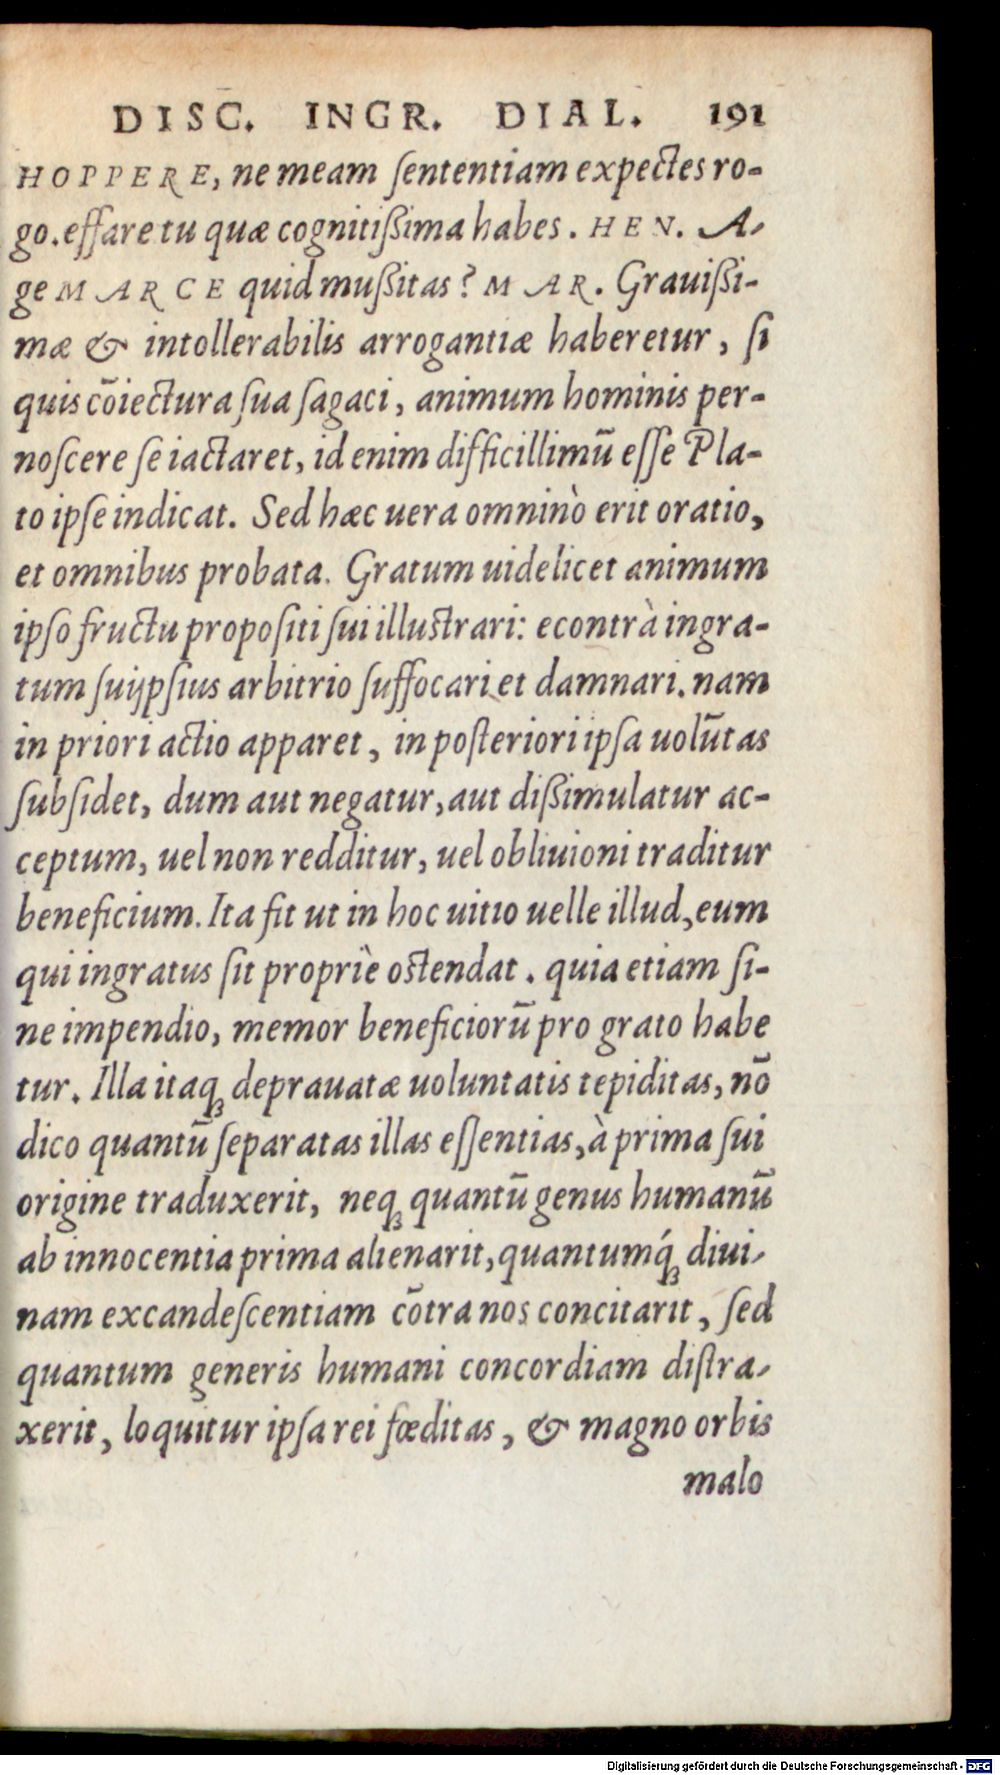 DISC. INGR. DIAL. 191
HOPPERE, ne meam ſententiam expectes ro-
go. effare tu quæ cognitißima habes. HEN. A-
ge MARCE quid mußitas? MAR. Grauißi-
mæ & intollerabilis arrogantiæ haberetur, ſi
quis cōiectura ſua ſagaci, animum hominis per-
noſcere ſe iactaret, id enim difficillimū eſſe Pla-
to ipſe indicat. Sed hæc uera omninò erit oratio,
et omnibus probata. Gratum uidelicet animum
ipſo fructu propoſiti ſui illuſtrari: econtrà ingra-
tum ſuijpſius arbitrio ſuffocari et damnari. nam
in priori actio apparet, in poſteriori ipſa uolūtas
ſubſidet, dum aut negatur, aut dißimulatur ac-
ceptum, uel non redditur, uel obliuioni traditur
beneficium. Ita fit ut in hoc uitio uelle illud, eum
qui ingratus ſit propriè oſtendat. quia etiam ſi-
ne impendio, memor beneficiorū pro grato habe
tur. Illa itaq; deprauatæ uoluntatis tepiditas, nō
dico quantū ſeparatas illas eſſentias, à prima ſui
origine traduxerit, neq; quantū genus humanū
ab innocentia prima alienarit, quantumq́; diui-
nam excandeſcentiam cōtra nos concitarit, ſed
quantum generis humani concordiam diſtra-
xerit, loquitur ipſa rei fœditas, & magno orbis
malo
Digitalisierung gefördert durch die Deutsche Forschungsgemeinschaft - DFG